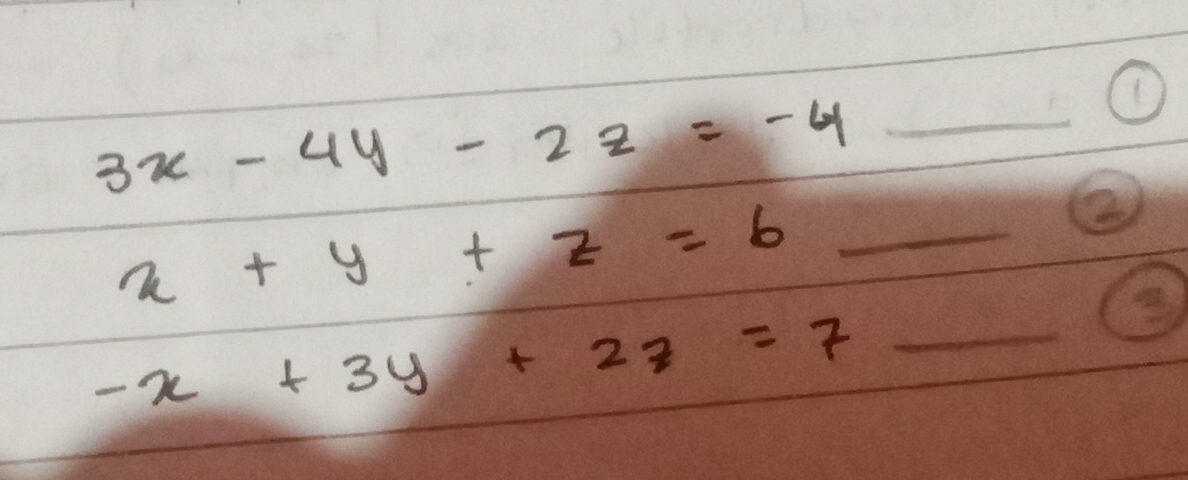 3x - 4y - 2z = -4 ——— ①
x + y + z = 6 ——— ②
-x + 3y + 2z = 7 ——— ③